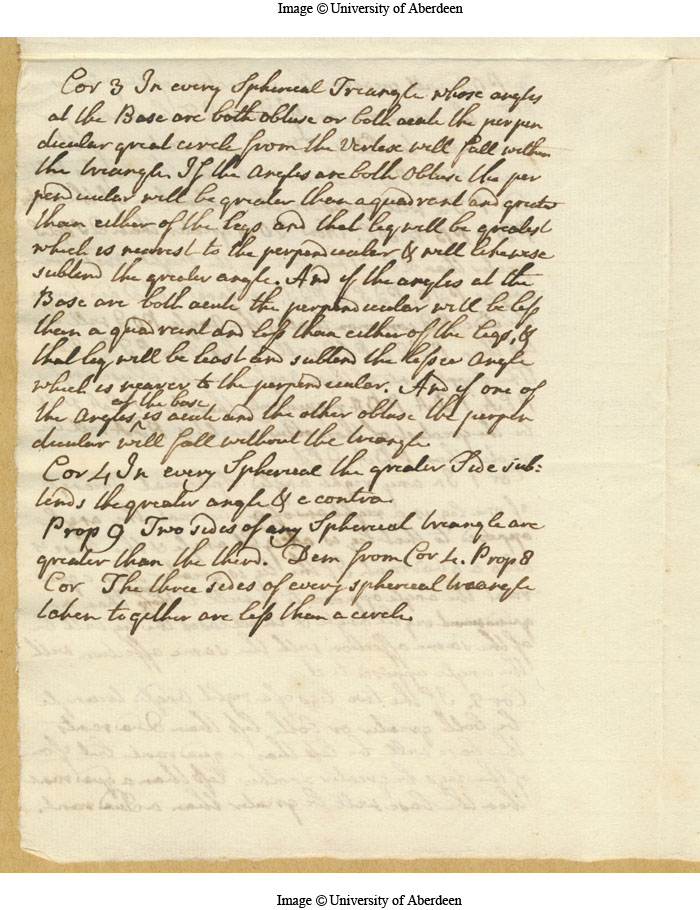 Image © University of Aberdeen
Cor 3 In every Spherical Triangle whose angles
at the Base are both obtuse or both acute the perpen
dicular great circle from the Vertex will fall within
the triangle. If the Angles are both Obtuse the per
pendicular will be greater than a quadrant and greater
than either of the legs and that leg will be greatest
which is nearest to the perpendicular & will likewise
subtend the greater angle. And if the angles at the
Base are both acute the perpendicular will be less
than a quadrant and less than either of the legs, &
that leg will be least and subtend the lesser Angle
which is nearer to the perpendicular. And if one of
of the base
the Angles ^ is acute and the other obtuse the perpen
dicular will fall without the triangle
Cor 4 In every Spherical the greater Side sub:
tends the greater angle & e contra
Prop 9 Two sides of any Spherical triangle are
greater than the third. Dem from Cor 4. Prop 8
Cor The three sides of every spherical triangle
taken together are less than a circle.
Image © University of Aberdeen